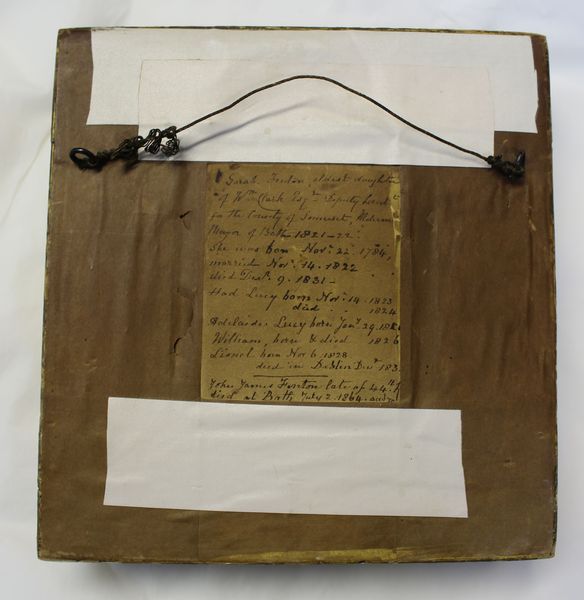 Sarah Fenton, eldest daughter
of Wm Clark Esqre Deputy Lieut
for the County of Somerset, Alderman
Mayor of Bath 1821-22.
She was born Novr 22 1784,
married Novr 14. 1822
died 9. 1831-
Had Lucy born Novr 14. 1823
died 1824
Adelaide Lucy born Jany 29. 182
William, born & died 1826
Lionel born Nov 6 1828
died in Dublin Decr 183
John James Fenton late of 44th
died at July 2. 1864.